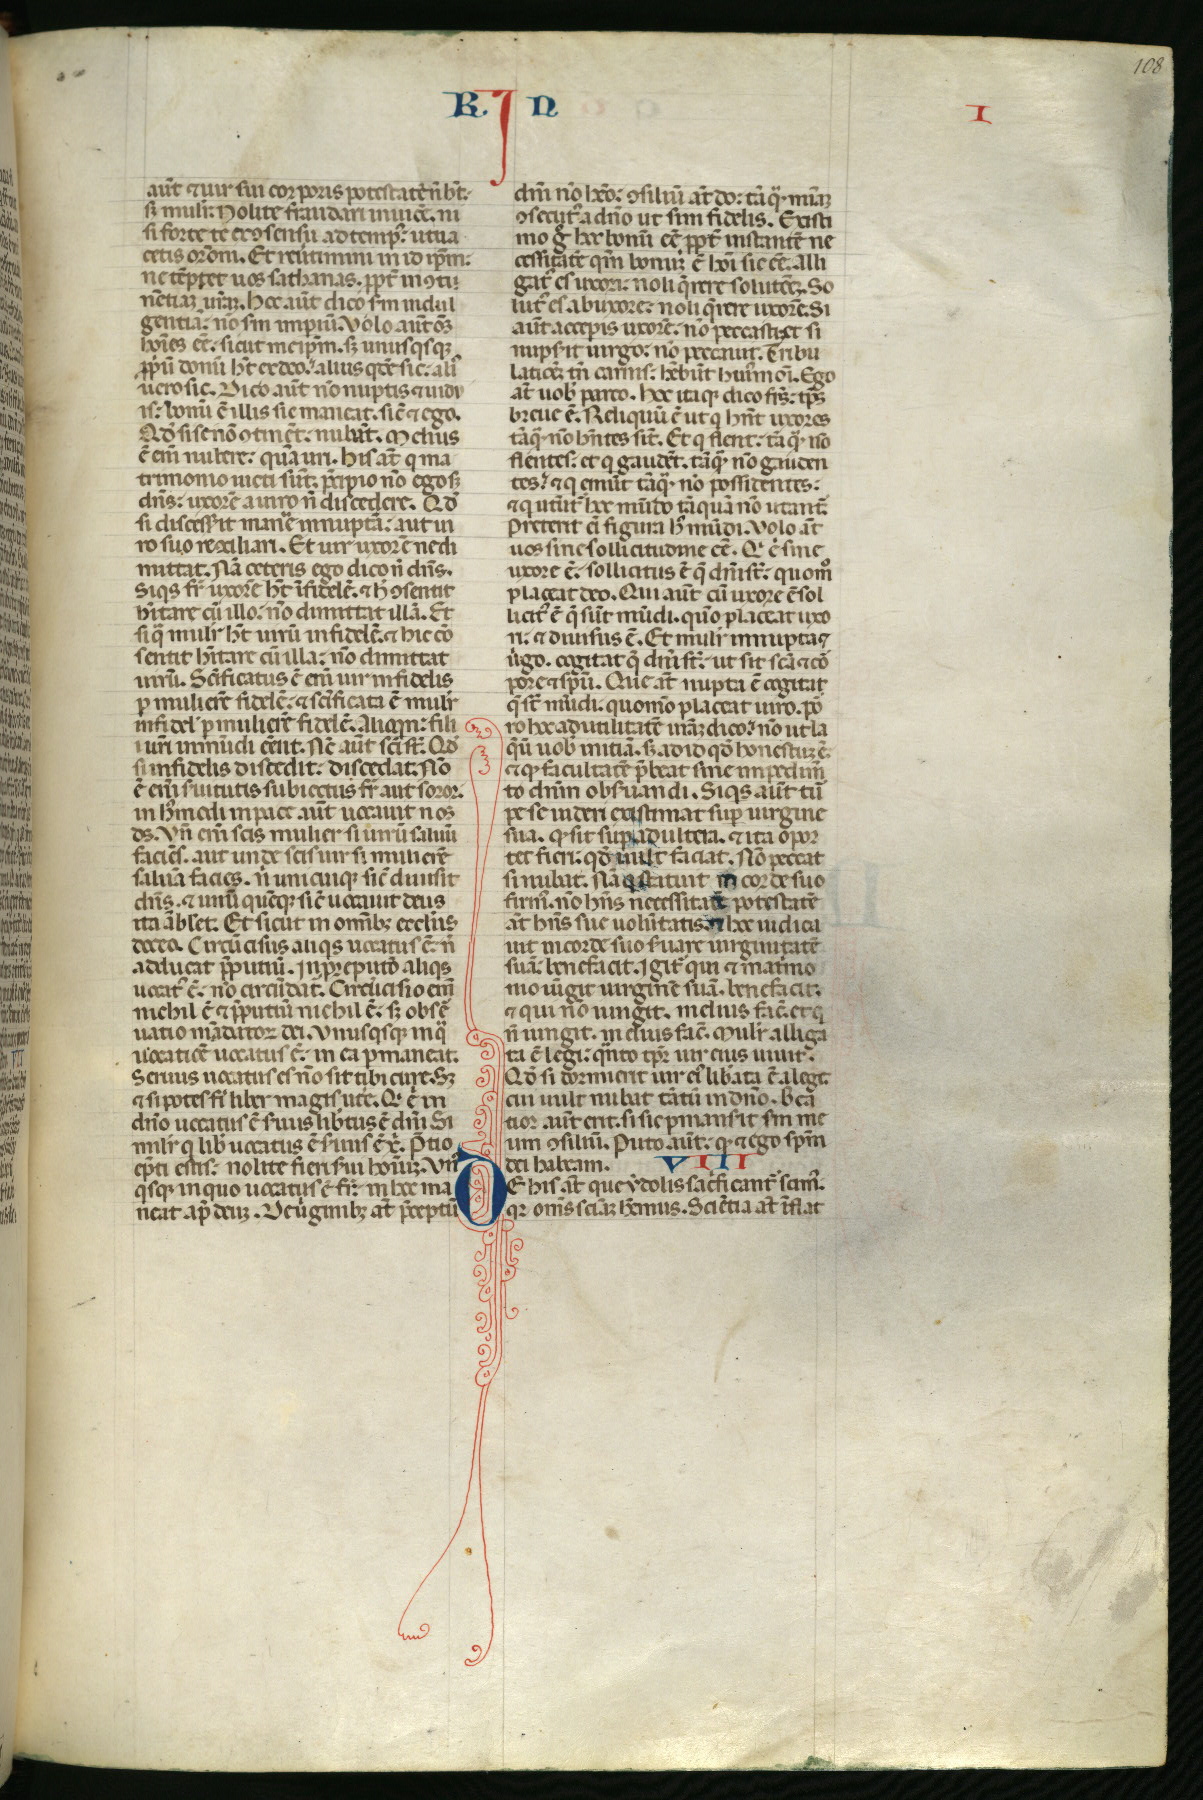 108
R I N
I
aut̄ ⁊ uir sui corporis potestatē n̄ ht̄.
sꝫ mulr̄. Nolite fraudari inuicē. ni
si forte te ex ꝯsensu ad temp᷒. ut ua
cetis orōni. Et reūtimini in id ip̄m.
ne tēptet uos sathanas. ꝓpt̄ inꝯti
nētiaꝫ ur̄aꝫ. Hec aut̄ dico sm̄ indul
gentiā. nō sm̄ imperiū. Volo aut̄ oms̄
hoīes ēē. sicut meip̄m. sꝫ unusqsqꝫ
ꝓpͥū donū ht̄ ex deo. alius qͥdē sic. aliꝰ
uero sic. Dico aut̄ nō nuptis ⁊ uidu
is. bonū ē illis sic maneat. sic̄ ⁊ ego.
Qd̄ si se nō ꝯtinēt. nubāt. Melius
ē eīm nubere. quā uri. His at̄ q ma
trimonio iuncti sūt. p̄cipio nō ego sꝫ
dn̄s. uxorē a uiro n̄ discedere. Qd̄
si discess̄it manē innuptā. aut ui
ro suo recōciliari. Et uir uxorē ne di
mittat. Nā ceteris ego dico n̄ dn̄s.
Siqs fr̄ uxorē ht̄ īfidelē. ⁊ h̄ ꝯsentit
hītare cū illo. nō dimittat illā. Et
si q̄ mulr̄ ht̄ uirū infidelē. ⁊ hic cō
sentit hītare cū illa. nō dimittat
uirū. Sc̄ificatus ē eīm uir infidelis
ꝑ mulierē fidelē. ⁊ sc̄ificata ē mulr̄
infidel᷒ ꝑ mulierē fidelē. Alioqn̄. fili
i ur̄i inmūdi eēnt. Nc̄ aut̄ sc̄i st̄. Qd̄
si infidelis discedit. discedat. Nō
ē eīm seruituti subiectus fr̄ aut soror.
in hꝰmodi in pace aut̄ uocauit nos
ds̄. Vn̄ eīm scis mulier si uirū saluū
facies. aut unde scis uir si mulierē
saluā facies. n̄ unicuiqꝫ sic̄ diuisit
dn̄s. ⁊ unū quēqꝫ sic̄ uocauit deus
ita ābulet. Et sicut in omībꝫ eccl̄iis
doceo. Circūcisus aliqs uocatus ē. n̄
adducat p̄putiū. In p̄putio aliqs
uocat᷒ ē. nō circūcidat᷒. Circūcisio eīm
nichil ē ⁊ p̄putiū nichil ē. sꝫ obsē
uatio mādator᷒ dei. Vnusqsqꝫ in q̄
uocatiōe uocatus ē. in ea ꝑmaneat.
Seruus uocatus es nō sit tibi cure. Sꝫ
⁊ si potes fīi liber magis ut̄e. Qͥ ē in
dn̄o uocatus ē seruus libtus ē dn̄i. Si
militr̄ q lib᷒ uocatus ē seruus ē xͥ. P̄tio
ēpti estis. nolite fieri serui hoīuꝫ. Vnꝰ
qsqꝫ in quo uocatus ē fr̄. in hoc ma
neat ap̄ deuꝫ. De ūginibꝫ at̄ p̄ceptū
dn̄i nō heo. ꝯsiliū at̄ do. tāqͣꝫ mīaꝫ
ꝯsecut᷒ a dn̄o ut sim fidelis. Existi
mo ḡ hoc bonū ēē ꝓpt̄ instantē ne
cessitatē qm̄ bonuꝫ ē hoī sic ēē. Alli
gat᷒ es uxori. noli q̄rere solutōeꝫ. So
lut᷒ es ab uxore. noli q̄rere uxorē. Si
aut̄ acceperis uxorē. nō peccasti. et si
nups̄it uirgo. nō peccauit. Tribu
lationeꝫ tn̄ carnis. hēbūt huꝰmōi. Ego
at̄ uob᷒ parco. Hoc itaqꝫ dico fr̄s. tp̄s
breue ē. Reliquū ē ut q hn̄t uxores
tāqͣꝫ nō hn̄tes sīt. Et q flent. tāqͣꝫ nō
flentes. et q gaudēt. tāqͣꝫ nō gauden
tes. ⁊ q emūt tāqͣꝫ nō possidentes.
⁊ q utūt᷒ hoc mūdo tāquā nō utant᷒.
Preterit eī figura hꝰ mūdi. Volo at̄
uos sine sollicitudine ēē. Qͥ sine
uxore ē. sollicitus ē q̄ dn̄i st̄. quomō
placeat deo. Qui aut̄ cū uxore ē sol
licit᷒ ē q̄ sūt mūdi. quō placeat uxo
ri. ⁊ diuisus ē. Et mulr̄ innupta ⁊
ūgo. cogitat q̄ dn̄i st̄. ut sit sc̄a ⁊ cō
pore ⁊ sp̄u. Que at̄ nupta ē cogitat
q̄ st̄ mūdi. quomō placeat uiro. Po
ro hoc ad utilitatē ur̄am dico. nō ut la
q̄ū uob᷒ iniciā. sꝫ ad id qd̄ honestuꝫ ē.
⁊ qꝫ facultatē p̄beat sine impedim̄
to dn̄m obseruandi. Siqs aut̄ tur̄
pe se uideri existimat suꝑ uirgine
sua. qꝫ sit supadultera. ⁊ ita opor
tet fieri. qd̄ uult faciat. Nō peccat
si nubat. Nā q statuit in corde suo
firm᷒. nō hn̄s necessitatē potestatē
at̄ hn̄s sue volūtatis. ⁊ hoc iudica
uit in corde suo seruare uirginitatē
suā. bene facit. Igit᷒ qui ⁊ matimo
mo iūgit uirginē suā. bene facit.
⁊ qui nō iungit. melius fac̄. et q
n̄ iungit. melius fac̄. Mulr̄ alliga
ta ē legi. qn̄to tp̄r uir eius uiuit.
Qd̄ si dormierit uir eꝰ lib᷒ata ē a lege.
cui uult nubat tātū in dn̄o. beā
tior aut̄ erit. si sic ꝑmanserit sm̄ me
um ꝯsiliū. Puto aut̄. qꝫ ⁊ ego sp̄m
dei habeam. VIII
DE his at̄ que ydolis sac̄ficant᷒ scimꝰ.
qꝛ om̄s sciāꝫ hēmus. Sciētia at̄ īflat